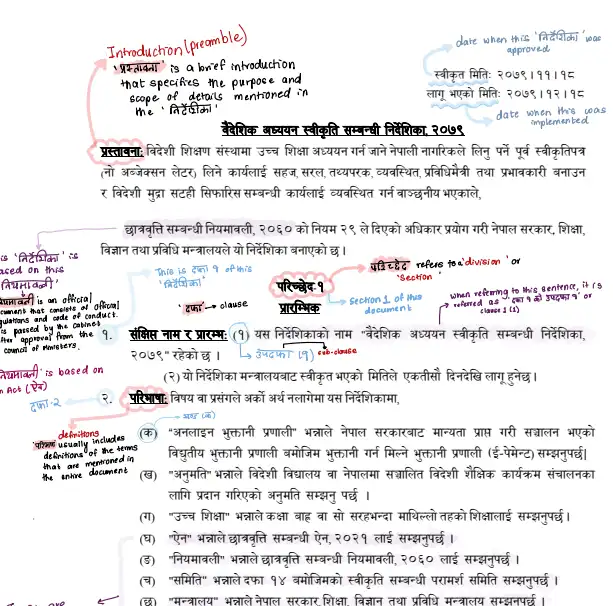 Introduction (preamble)
'प्रस्तावना' is a brief introduction
that specifies the purpose and
scope of details mentioned in
the 'निर्देशिका'
date when this 'निर्देशिका' was
approved
स्वीकृत मितिः २०७९।११।१८
लागू भएको मितिः २०७९।१२।१८
date when this was
implemented
वैदेशिक अध्ययन स्वीकृति सम्बन्धी निर्देशिका, २०७९
प्रस्तावनाः विदेशी शिक्षण संस्थामा उच्च शिक्षा अध्ययन गर्न जाने नेपाली नागरिकले लिनु पर्ने पूर्व स्वीकृतिपत्र
(नो अब्जेक्सन लेटर) लिने कार्यलाई सहज, सरल, तथ्यपरक, व्यवस्थित, प्रविधिमैत्री तथा प्रभावकारी बनाउन
र विदेशी मुद्रा सटही सिफारिस सम्बन्धी कार्यलाई व्यवस्थित गर्न वाञ्छनीय भएकाले,
छात्रवृत्ति सम्बन्धी नियमावली, २०६० को नियम २९ ले दिएको अधिकार प्रयोग गरी नेपाल सरकार, शिक्षा,
विज्ञान तथा प्रविधि मन्त्रालयले यो निर्देशिका बनाएको छ।
is 'निर्देशिका' is
ased on this
नियमावली'
This is दफा १ of this
'निर्देशिका'
परिच्छेद refers to a 'division' or
'Section'
परिच्छेद-१
प्रारम्भिक
'दफा' → clause
section 1 of this
document
When referring to this sentence, it is
referred as 'दफा १ को उपदफा १' or
clause 1 (1)
नियमावली is an official
cument that consists of official
gulations and code of conduct.
is passed by the cabinet
fter approval from the
council of Ministers.
१. संक्षिप्त नाम र प्रारम्भः (१) यस निर्देशिकाको नाम "वैदेशिक अध्ययन स्वीकृति सम्बन्धी निर्देशिका,
२०७९" रहेको छ ।
उपदफा (१) sub-clause
(२) यो निर्देशिका मन्त्रालयबाट स्वीकृत भएको मितिले एकतीसौं दिनदेखि लागू हुनेछ।
नियमावली' is based on
n Act (ऐन)
दफा-२
२. परिभाषाः विषय वा प्रसंगले अर्को अर्थ नलागेमा यस निर्देशिकामा,
definitions
'परिभाषा' usually includes
definitions of the terms
that are mentioned in
the entire document
(क) "अनलाइन भुक्तानी प्रणाली" भन्नाले नेपाल सरकारबाट मान्यता प्राप्त गरी सञ्चालन भएको
विद्युतीय भुक्तानी प्रणाली बमोजिम भुक्तानी गर्न मिल्ने भुक्तानी प्रणाली (ई-पेमेन्ट) सम्झनुपर्छ|
(ख) "अनुमति" भन्नाले विदेशी विद्यालय वा नेपालमा सञ्चालित विदेशी शैक्षिक कार्यक्रम संचालनका
लागि प्रदान गरिएको अनुमति सम्झनु पर्छ ।
(ग) "उच्च शिक्षा" भन्नाले कक्षा बाह्र वा सो सरहभन्दा माथिल्लो तहको शिक्षालाई सम्झनुपर्छ।
(घ) "ऐन" भन्नाले छात्रवृत्ति सम्बन्धी ऐन, २०२१ लाई सम्झनुपर्छ ।
(ङ) "नियमावली" भन्नाले छात्रवृत्ति सम्बन्धी नियमावली, २०६० लाई सम्झनुपर्छ ।
(च) "समिति" भन्नाले दफा १४ बमोजिमको स्वीकृति सम्बन्धी परामर्श समिति सम्झनुपर्छ ।
(छ) "मन्त्रालय" भन्नाले नेपाल सरकार,शिक्षा, विज्ञान तथा प्रविधि मन्त्रालय सम्झनुपर्छ ।